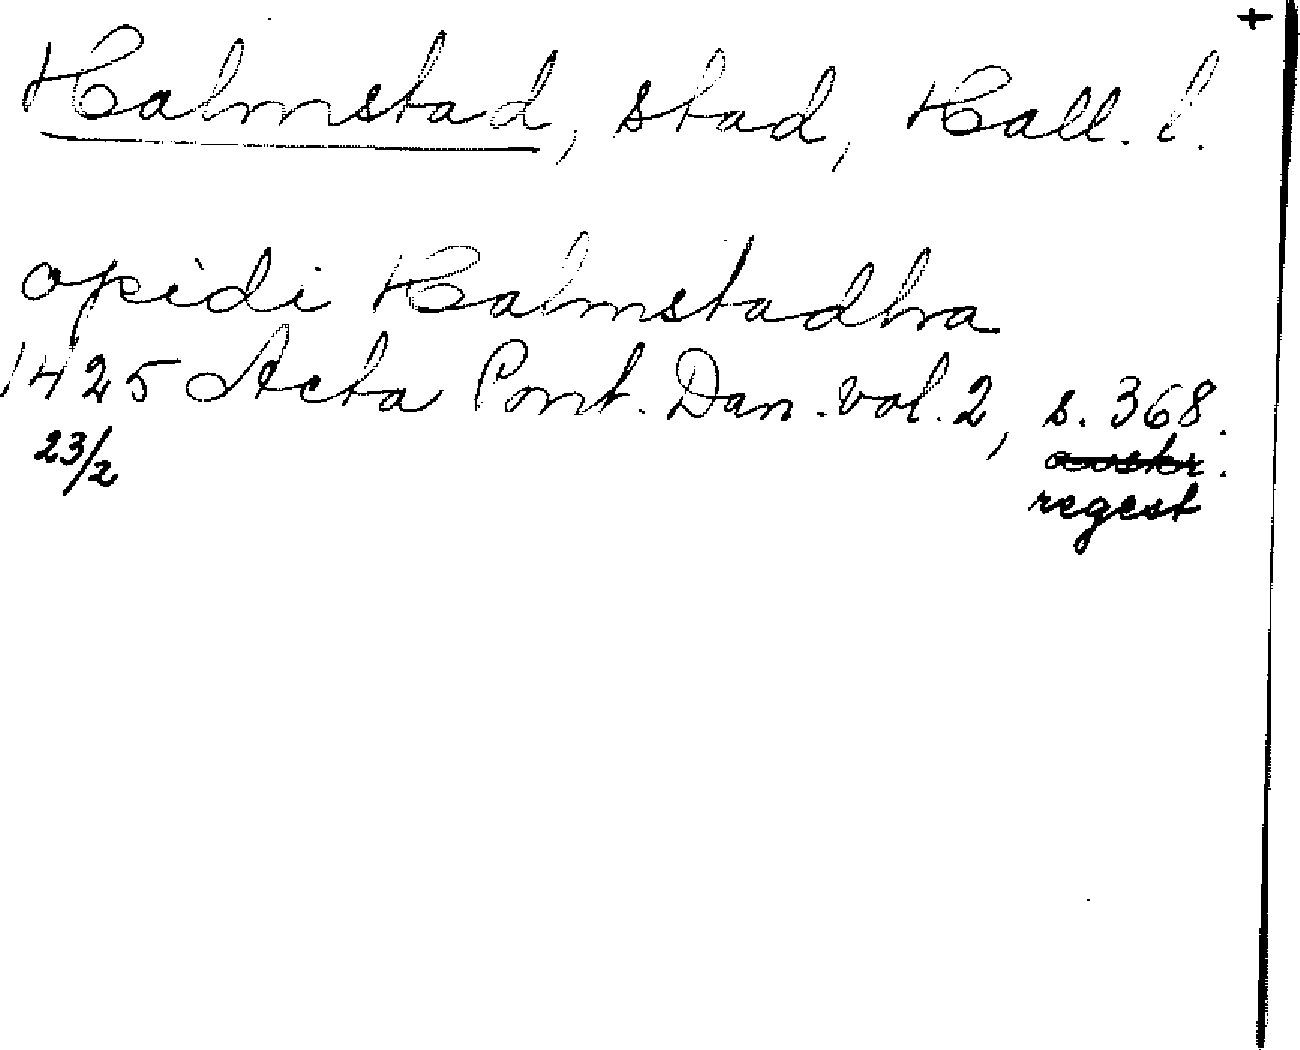 +
Halmstad, stad, Hall. l.
opidi Halmstadha
1425 Acta Pont. Dan. vol. 2, s. 368.
23/2 avskr.
regest